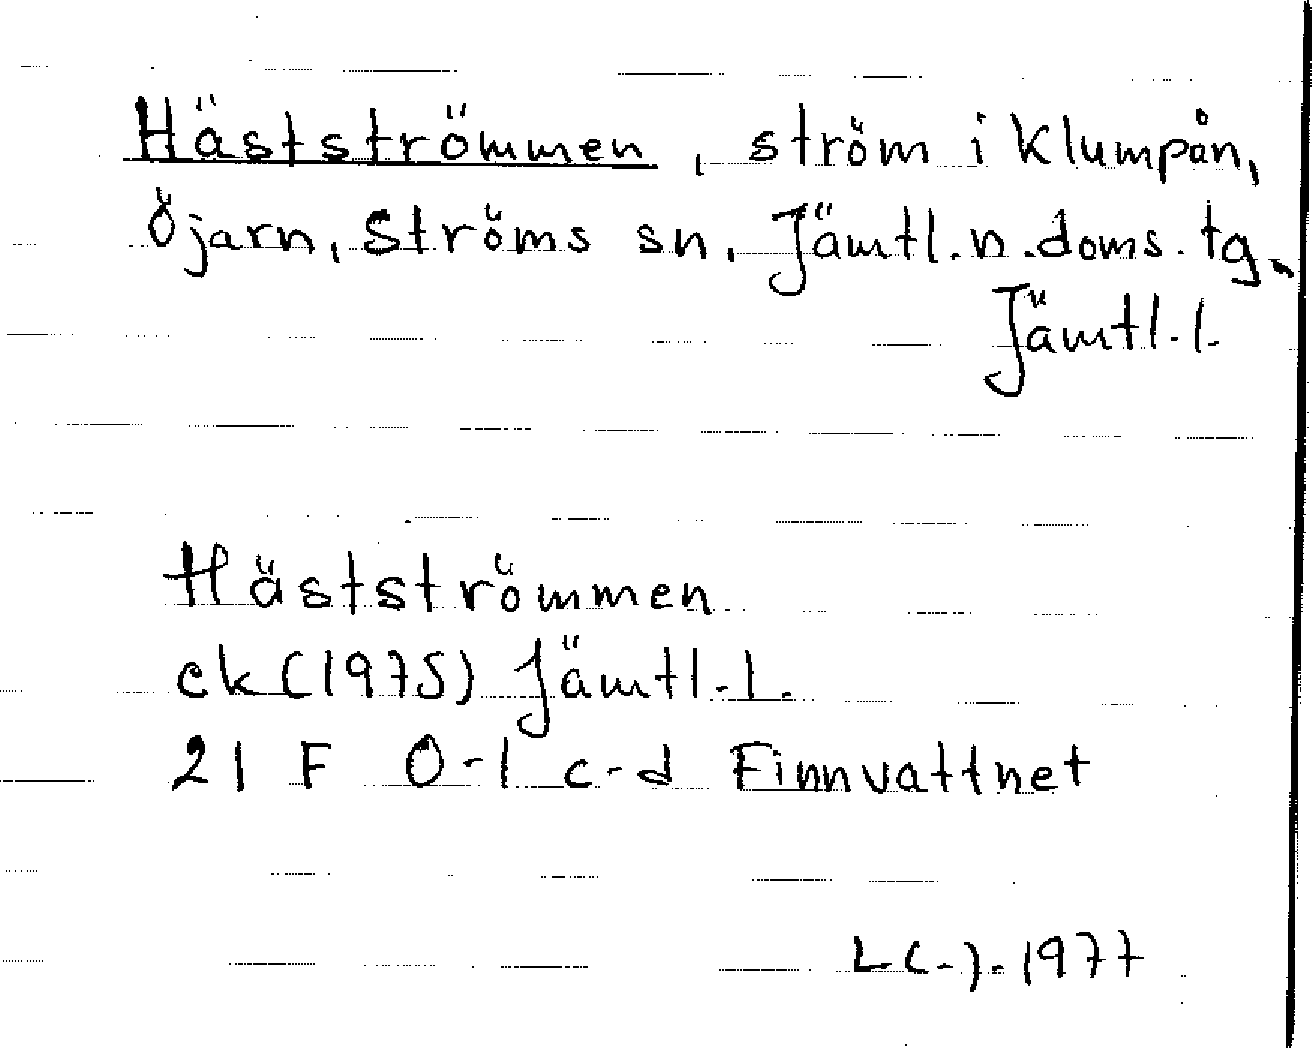 Hästströmmen, ström i Klumpån,
Öjarn, Ströms sn, Jämtl.n.doms.tg.
Jämtl.l.
Hästströmmen
ek (1975) Jämtl.l.
21 F 0-1 c-d Finnvattnet
L(-).1977